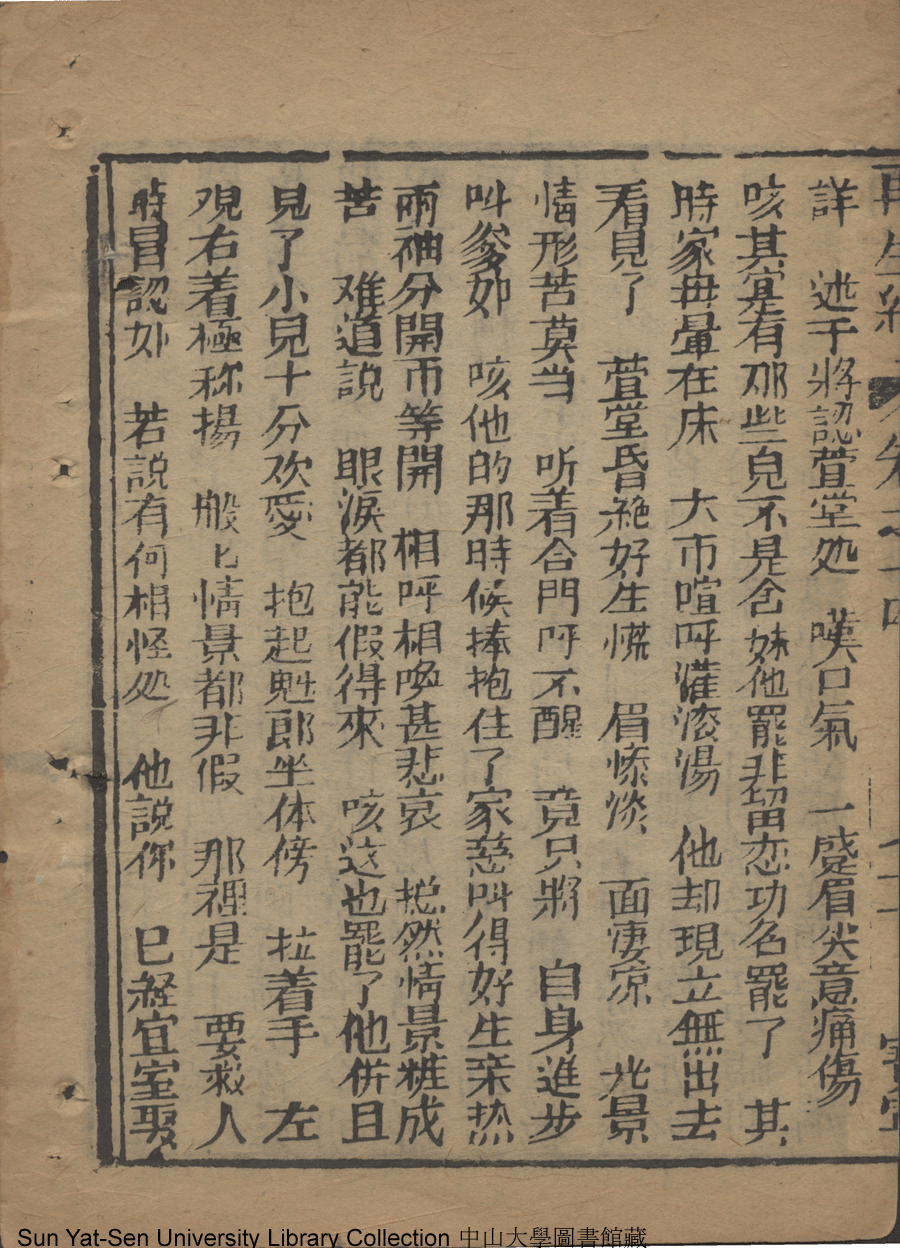 再生緣 卷之十四
詳 述于將認萱堂処 嘆口氣 一蹙眉尖意痛傷
咳其寔有那些皃不是舎妹他罷非留恋功名罷了 其
時家毋暈在床 大市喧呼灌滾湯 他却現立無出去
看見了 萱堂昏絶好生慌 眉慘淡 面凄凉 光景
情形苦莫当 听着合門呼不醒 竟只將 自身進步
叫爹如 咳他的那時候捧抱住了家慈叫得好生亲热
兩袖分開帀等開 相呼相喚甚悲哀 縂然情景粧成
苦 难道説 眼淚都能假得來 咳这也罷了他併且
見了小兒十分欢愛 抱起魁郎坐体傍 拉着手 左
覌右着極称揚 般匕情景都非假 那裡是 要救人
時冐認如 若説有何相怪処 他説你 巳経宜室聚
Sun Yat-Sen University Library Collection 中山大學圖書館藏